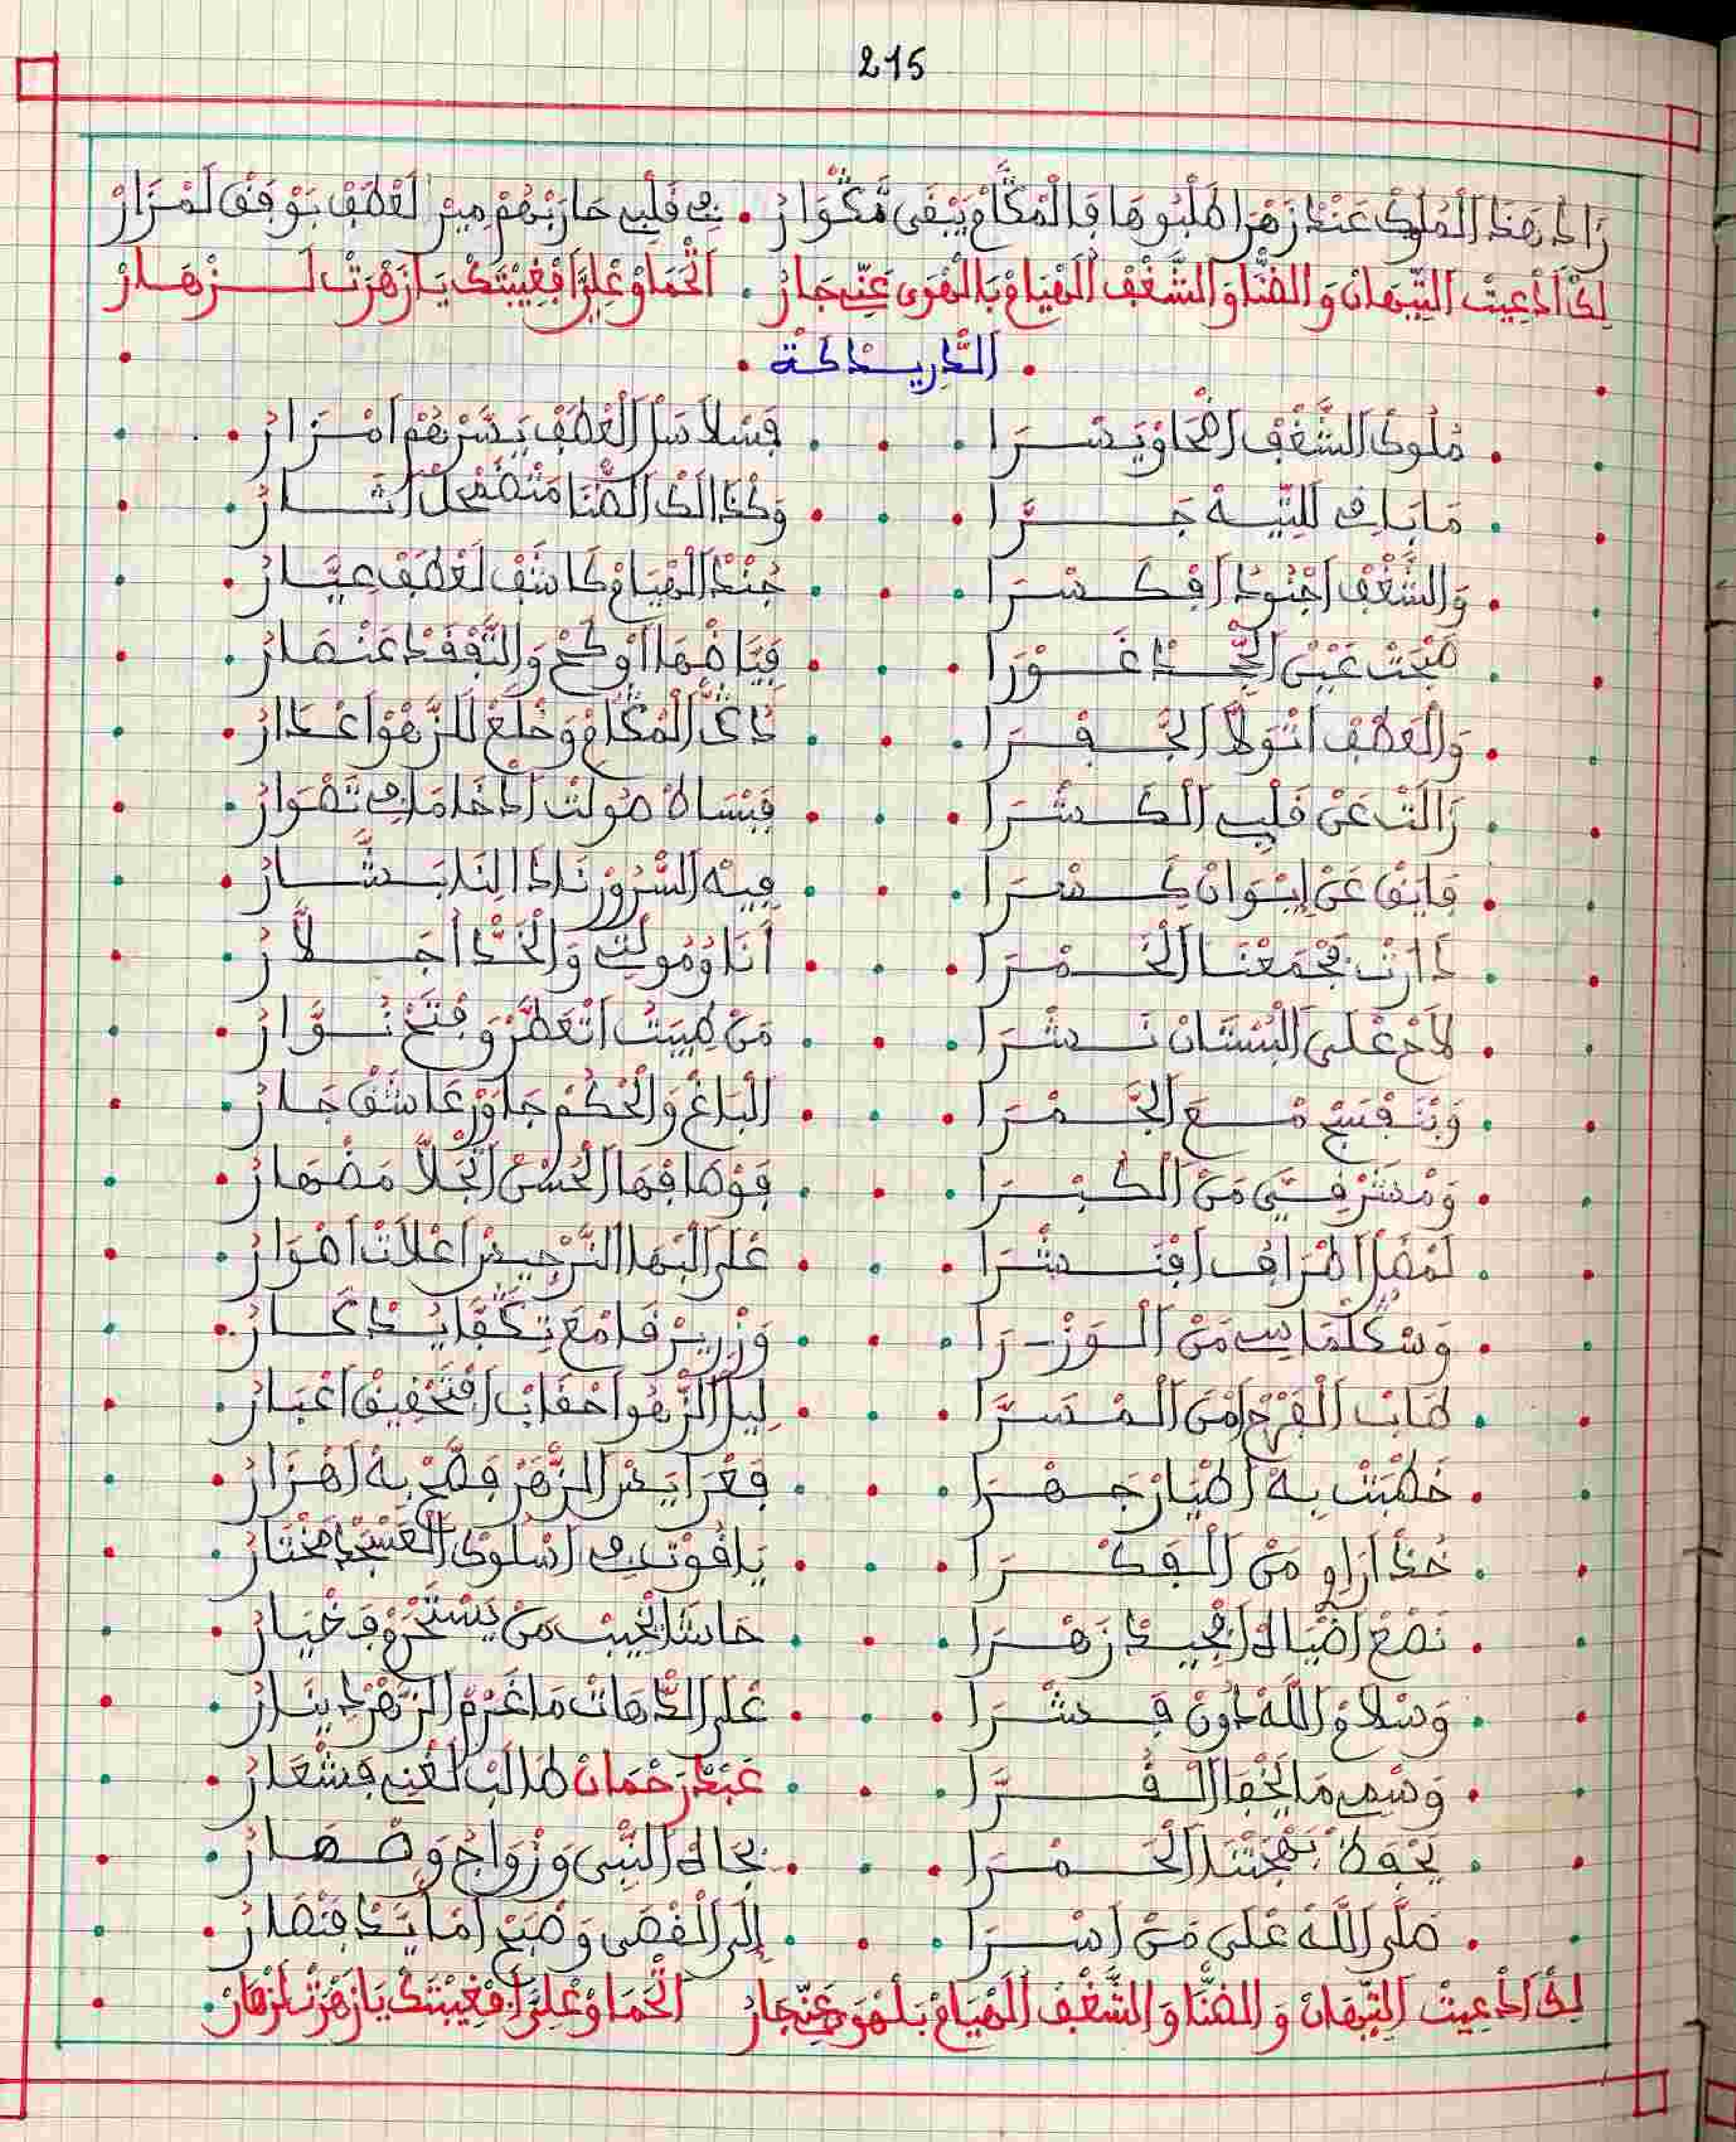 215
زَادْ هَذَا الْمُلِكْ عَنْدْ زَهْرَا طَلْبُوهَا فَالْمْكَامْ يَبْقَى مْگَوَّارْ . فِي قَلْبِي حَارَبْهُمْ مِيرْ لَعْطَفْ بَوْفَقْ لَمْزَارْ
لِكْ اَدْعِيتْ التِّيهَانْ وَالضْنَا وَالشّغْفْ الْهْيَامْ بَالْهْوَى عَنِّي جَارْ . اَتْحَمَاوْ عْلِيَّ افْغِيبْتَكْ يَا زَهْرَتْ لَزْهَارْ
الدْرِيدْكَة
مْلُوكْ الشّغْفْ اضْحَاوْ يَسْرَا . فَسْلَاسَلْ الْعْطَفْ يَسَّرْهُمْ اَمْزَارْ
مَا بَاقِي لَلتِّيهْ جَرَّا . وَكْذَالَكْ الضْنَا مَتْضَمْحَلْ اَثَارْ
وَالشّغْفْ اجْنُودْ افْكَسْرَا . جُنْدْ الْهْيَامْ كَاشَفْ لَعْطَفْ عِيَّارْ
صَبْحَتْ عَيْنْ الْجْحْدْ غَوْرَا . فَيَّاضْهَا اوْكَحْ وَالتّفْقَدْ عَنْصَارْ
وَالْعَطْفْ اتْوَلَّا الْجَفْرَا . دَاكْ الْمْكَامْ وَخْلَعْ لَلزّهْوْ اعْدَارْ
زَالَتْ عَنْ قَلْبِي الْكَشْرَا . فَبْسَاطْ صُولْتْ اَدْخَامَاقِي تَقْوَارْ
فَايَقْ عَنْ اِيوَانْ كِسْرَا . فِيهْ السّرُورْ نَادَا لِنَا بَشَّارْ
دَارْتْ فْجَمْعْنَا الْخَمْرَا . اَنَا وْمُولَاتِي وَالْخَدّ اجُلّارْ
لَاحْ عْلَى الْبُسْتَانْ نَشْرَا . مَنْ طِيبْتُ اتْعَطَّرْ وَفْتَحْ نُوَّارْ
وَبْنَفْسَجْ مْعَ الْجَمْرَا . الْبَاغْ وَالْحْكَمْ جَاوْرْ عَاشَقْ جَارْ
وَمْشَرْقِي مَنْ الْكُبْرَا . فَوْطَافْهَا الْحُسْنْ اتْجَلَّا مَضْهَارْ
لَمْضَلْ اطْرَافْ افْتَشْرَا . عْلَى الْبْهَا النَّرْجِيسْ اعْلَاتْ اضْوَارْ
وَسْكَلْمَاسِي مَنْ الْوُزْرَا . وَزْرِيرْ قَامْ مَعْ تِكْفَا يَدْكَارْ
طَابْ الْفْرْحْ امْنْ الْمْسَرَّا . لِيلْ الزّهُو احْقَابْ افْتَحْقِيقْ اعْبَارْ
خَطْبَتْ بِهْ اطْيَارْ جَهْرَا . فَعْرَايَسْ الزّهَرْ فَصَّحْ بِهْ اهْزَارْ
خُذْ ارَاوِي مَنْ الْفَكْرَا . يَاقُوتْ فِي اسْلُوكْ الْعَسْجْدْ مَخْتَارْ
نَصْعْ اضْيَاهْ افْجِيدْ زَهْرَا . حَاشَا يْخِيبْ مَنْ يَسْتَحْرُو فَخْيَارْ
وَسْلَامْ اللّهْ دُونْ قَشْرَا . عْلَى الدّهَاتْ مَا غَرْمْ الزّهْرْ دِينَارْ
وَسْمِي مَا يَخْفَا الْقُرَّا . عَبْدْ رَحْمَانْ طَالَبْ لَغْنِي فَشْعَارْ
يَحْفَظْ بَهْجَتْنَا الْحَمْرَا . بْجَاهْ النّبِي وَزْوَاجُ وَصْهَارْ
صَلَّى اللّهْ عْلَى مَنْ اسْرَا . اِلَى الْقْصَى وَصْبَحْ امَّايَدْ فَنْصَارْ
لِكْ اَدْعِيتْ التِّيهَانْ وَالضْنَا وَالشّغْفْ الْهْيَامْ بَلْهْوَى عَنِّي جَارْ اَتْحَمَاوْ عْلِيَّ افْغِيبْتَكْ يَا زَهْرَتْ لَزْهَارْ